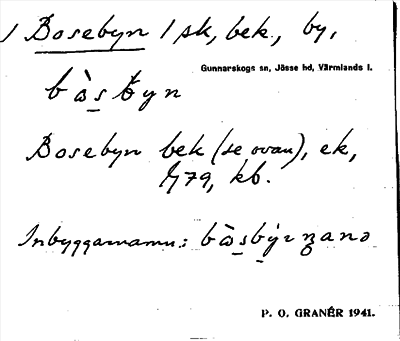 1 Bosebyn 1/sk, bek., by,
Gunnarskogs sn, Jösse hd, Värmlands l.
bὰs̲byn
Bosebyn bek (se ovan), ek,
1/179, kb.
Inbyggarnamn:
P. O. GRANÉR 1941.